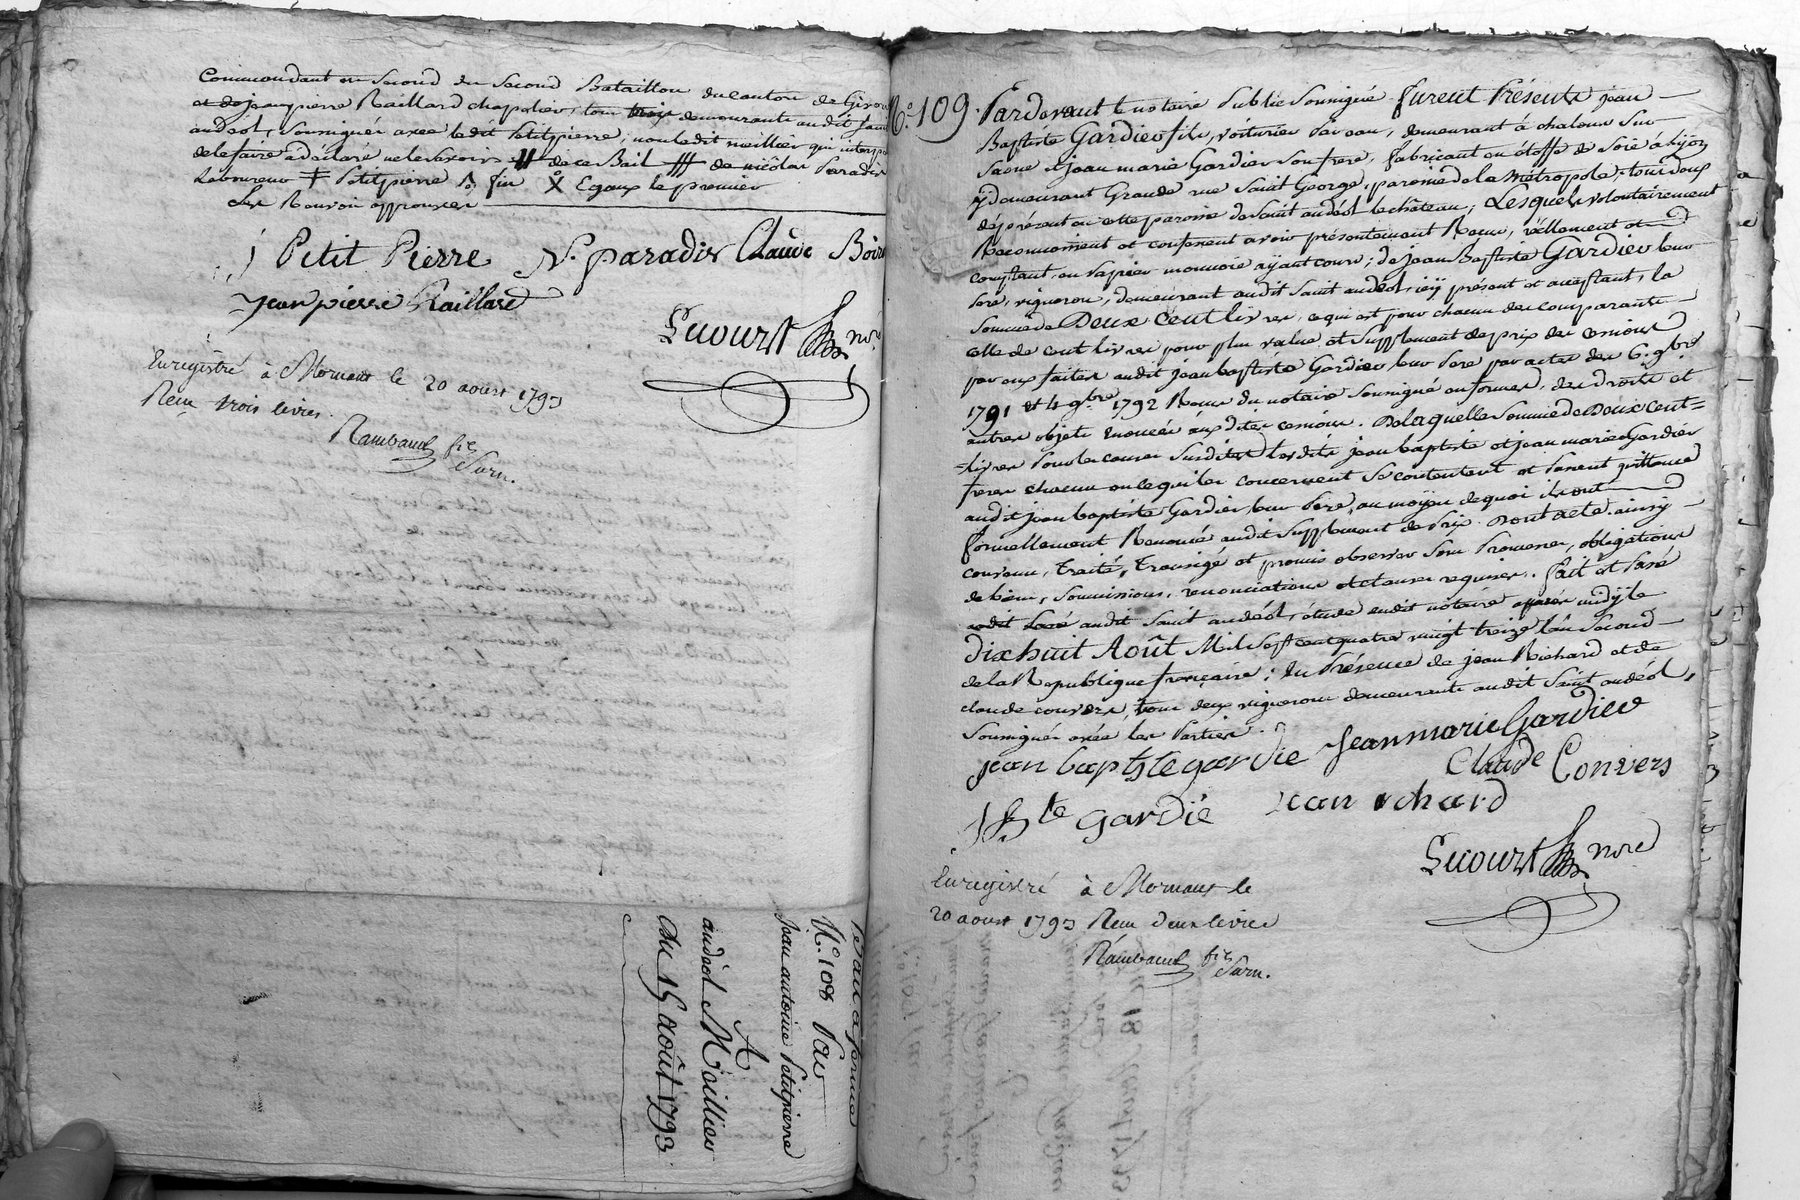 Commandant en second du second Bataillon du canton de Givor
et de jean pierre Raillard chapelier, tous trois demeurants audit saint
andéol, soussignés avec ledit Petitpierre, non ledit meillier qui interpellé
de le faire a déclaré ne le savoir ╫ de ce Bail ╫ de nicolas Paradis
Laboureur ‡ Petitpierre fin X Egaux le premier
Les Renvois approuvés
J Petit Pierre N. paradis Claude Boir
Jean pierre Raillard
Lucourt nore
Enregistré à Mornant le 20 aoust 1793
Reçu trois livres.
Rambaud fils
N.o 108 Par
Jean antoine Petitpierre
A
andéol Meillier
du 15 août 1793.
N.o 109. Pardevant le notaire Public soussigné furent Présents jean
Baptiste Gardier fils, voiturier Par eau, demeurant à chalons sur
Saone et jean marie Gardier son frere, fabricant en étoffe de soie à Lyon
y demeurant Grande rue Saint George, paroisse de la Métropole, tous deux
de présent en cette paroisse de Saint andéol le château; Lesquels volontairement
Reconnoissent et confessent avoir présentement Reçu, réellement et
comptant, en Papier monnoie ayant cours; de jean Baptiste Gardier leur
Pere, vigneron, demeurant audit Saint andéol, icy présent et acceptant, la
Somme de Deux Cent livres, ce qui est pour chacun des comparants
celle de cent livres pour plus value et supplement de prix des cessions
par eux faites audit jean baptiste Gardier leur Pere par actes des 6. 9bre
1791 et 4 9bre 1792 Reçus du notaire soussigné en formes, des droits et
autres objets énoncés auxdites cessions. De laquelle Somme de Deux Cent =
= livres Pour les causes Susdites lesdits jean baptiste et jean marie Gardier
freres chacun en ce qui les concernent se contentent et Passent quittance
audit jean baptiste Gardier leur Pere, au moÿen de quoi ils ont
formellement Renoncé audit Supplement de Prix. Dont acte. ainsy
convenu, traité, transigé et promis observer sous Promesses, obligations
de biens, soumissions, renonciations et clauses requises. fait et Passé
audit Saint andéol, étude dudit notaire après midÿ le
dix huit Août Mil Sept cent quatre vingt treize l'an Second
de la Republique française; En Présence de jean Richard et de
claude convers, tous deux vignerons demeurants audit Saint andéol,
Soussignés avec les Parties.
jean baptiste gardie Jean marie Gardier
Claude Convers
J B te gardie jean richard
Lucourt nore
Enregistré à Mornant le
20 aoust 1793 Reçu deux livres
Rambaud fils